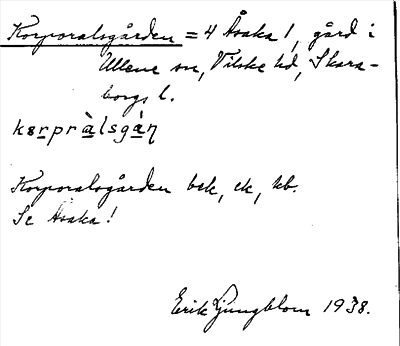 Korporalsgården = 4 Åsaka 1, gård i
Ullene sn, Vilske hd, Skara-
borgs l.
kɜrpràlsgàn̥
Korporalsgården bek, ek, kb.
Se Åsaka!
Erik Ljungblom 1938.